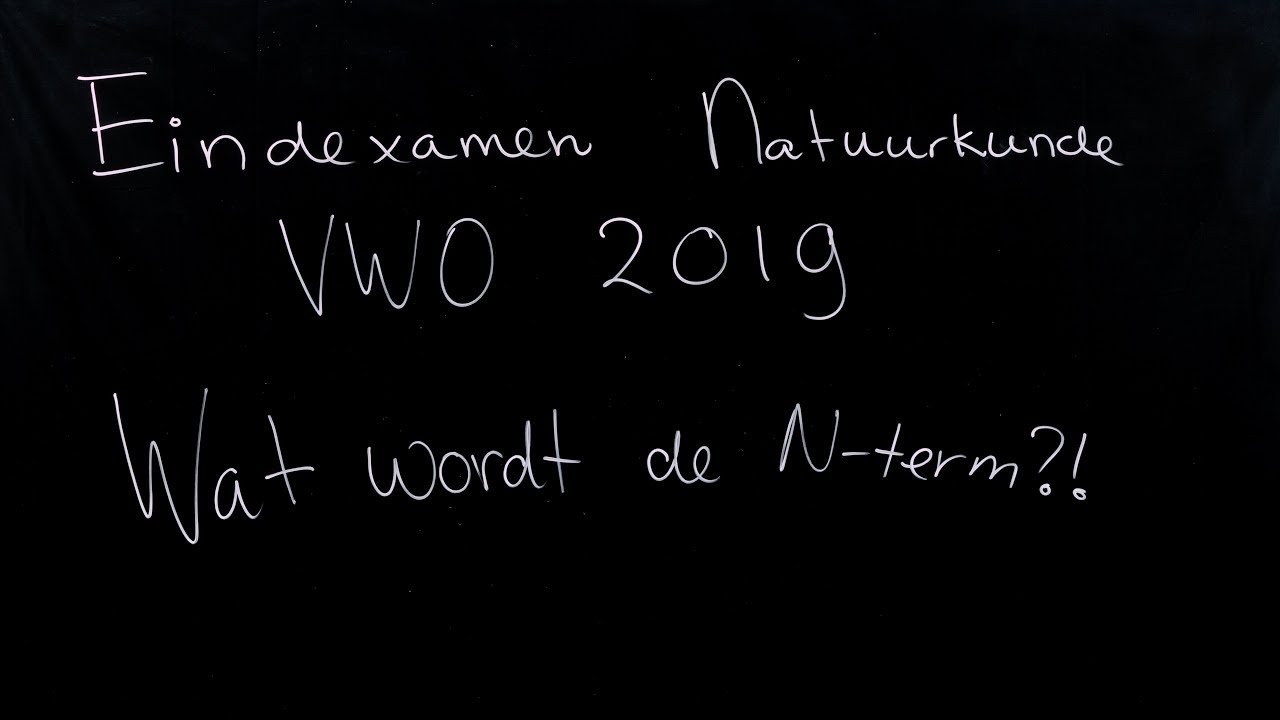 Eindexamen Natuurkunde
VWO 2019
Wat wordt de N-term?!